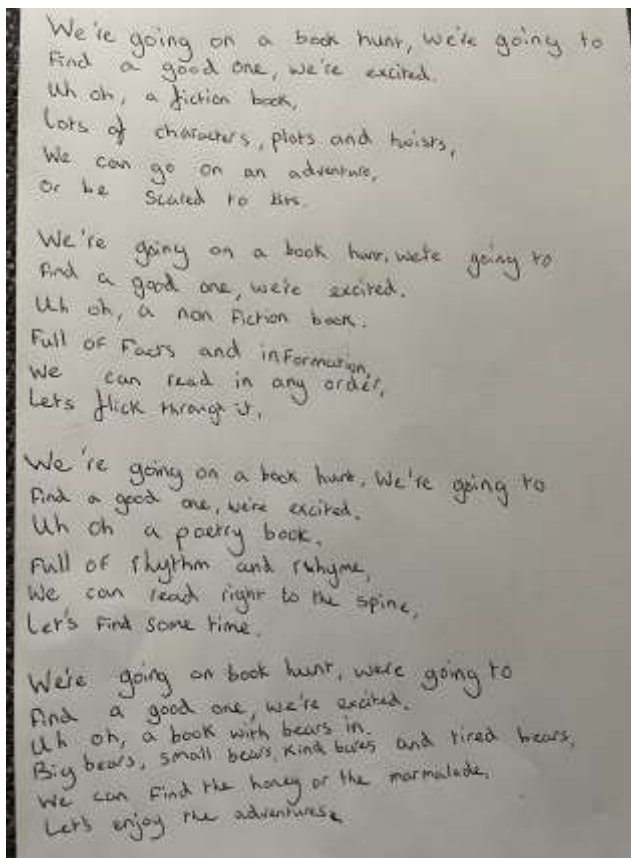 We're going on a book hunt, we're going to
Find a good one, we're excited.
Uh oh, a fiction book,
Lots of characters, plots and twists,
We can go on an adventure,
Or be Scared to bits.
We're going on a book hunt, we're going to
Find a good one, we're excited.
Uh oh, a non fiction book.
Full of Facts and information,
We can read in any order,
Lets flick through it,
We're going on a book hunt, We're going to
Find a good one, we're excited.
Uh oh a poetry book,
Full of rhythm and rwhyme,
We can read right to the spine,
Let's Find some time.
We're going on book hunt, we're going to
Find a good one, we're excited.
Uh oh, a book with bears in.
Big bears, small bears, kind bares and tired bears,
We can find the honey or the marmalade,
Let's enjoy the adventures.